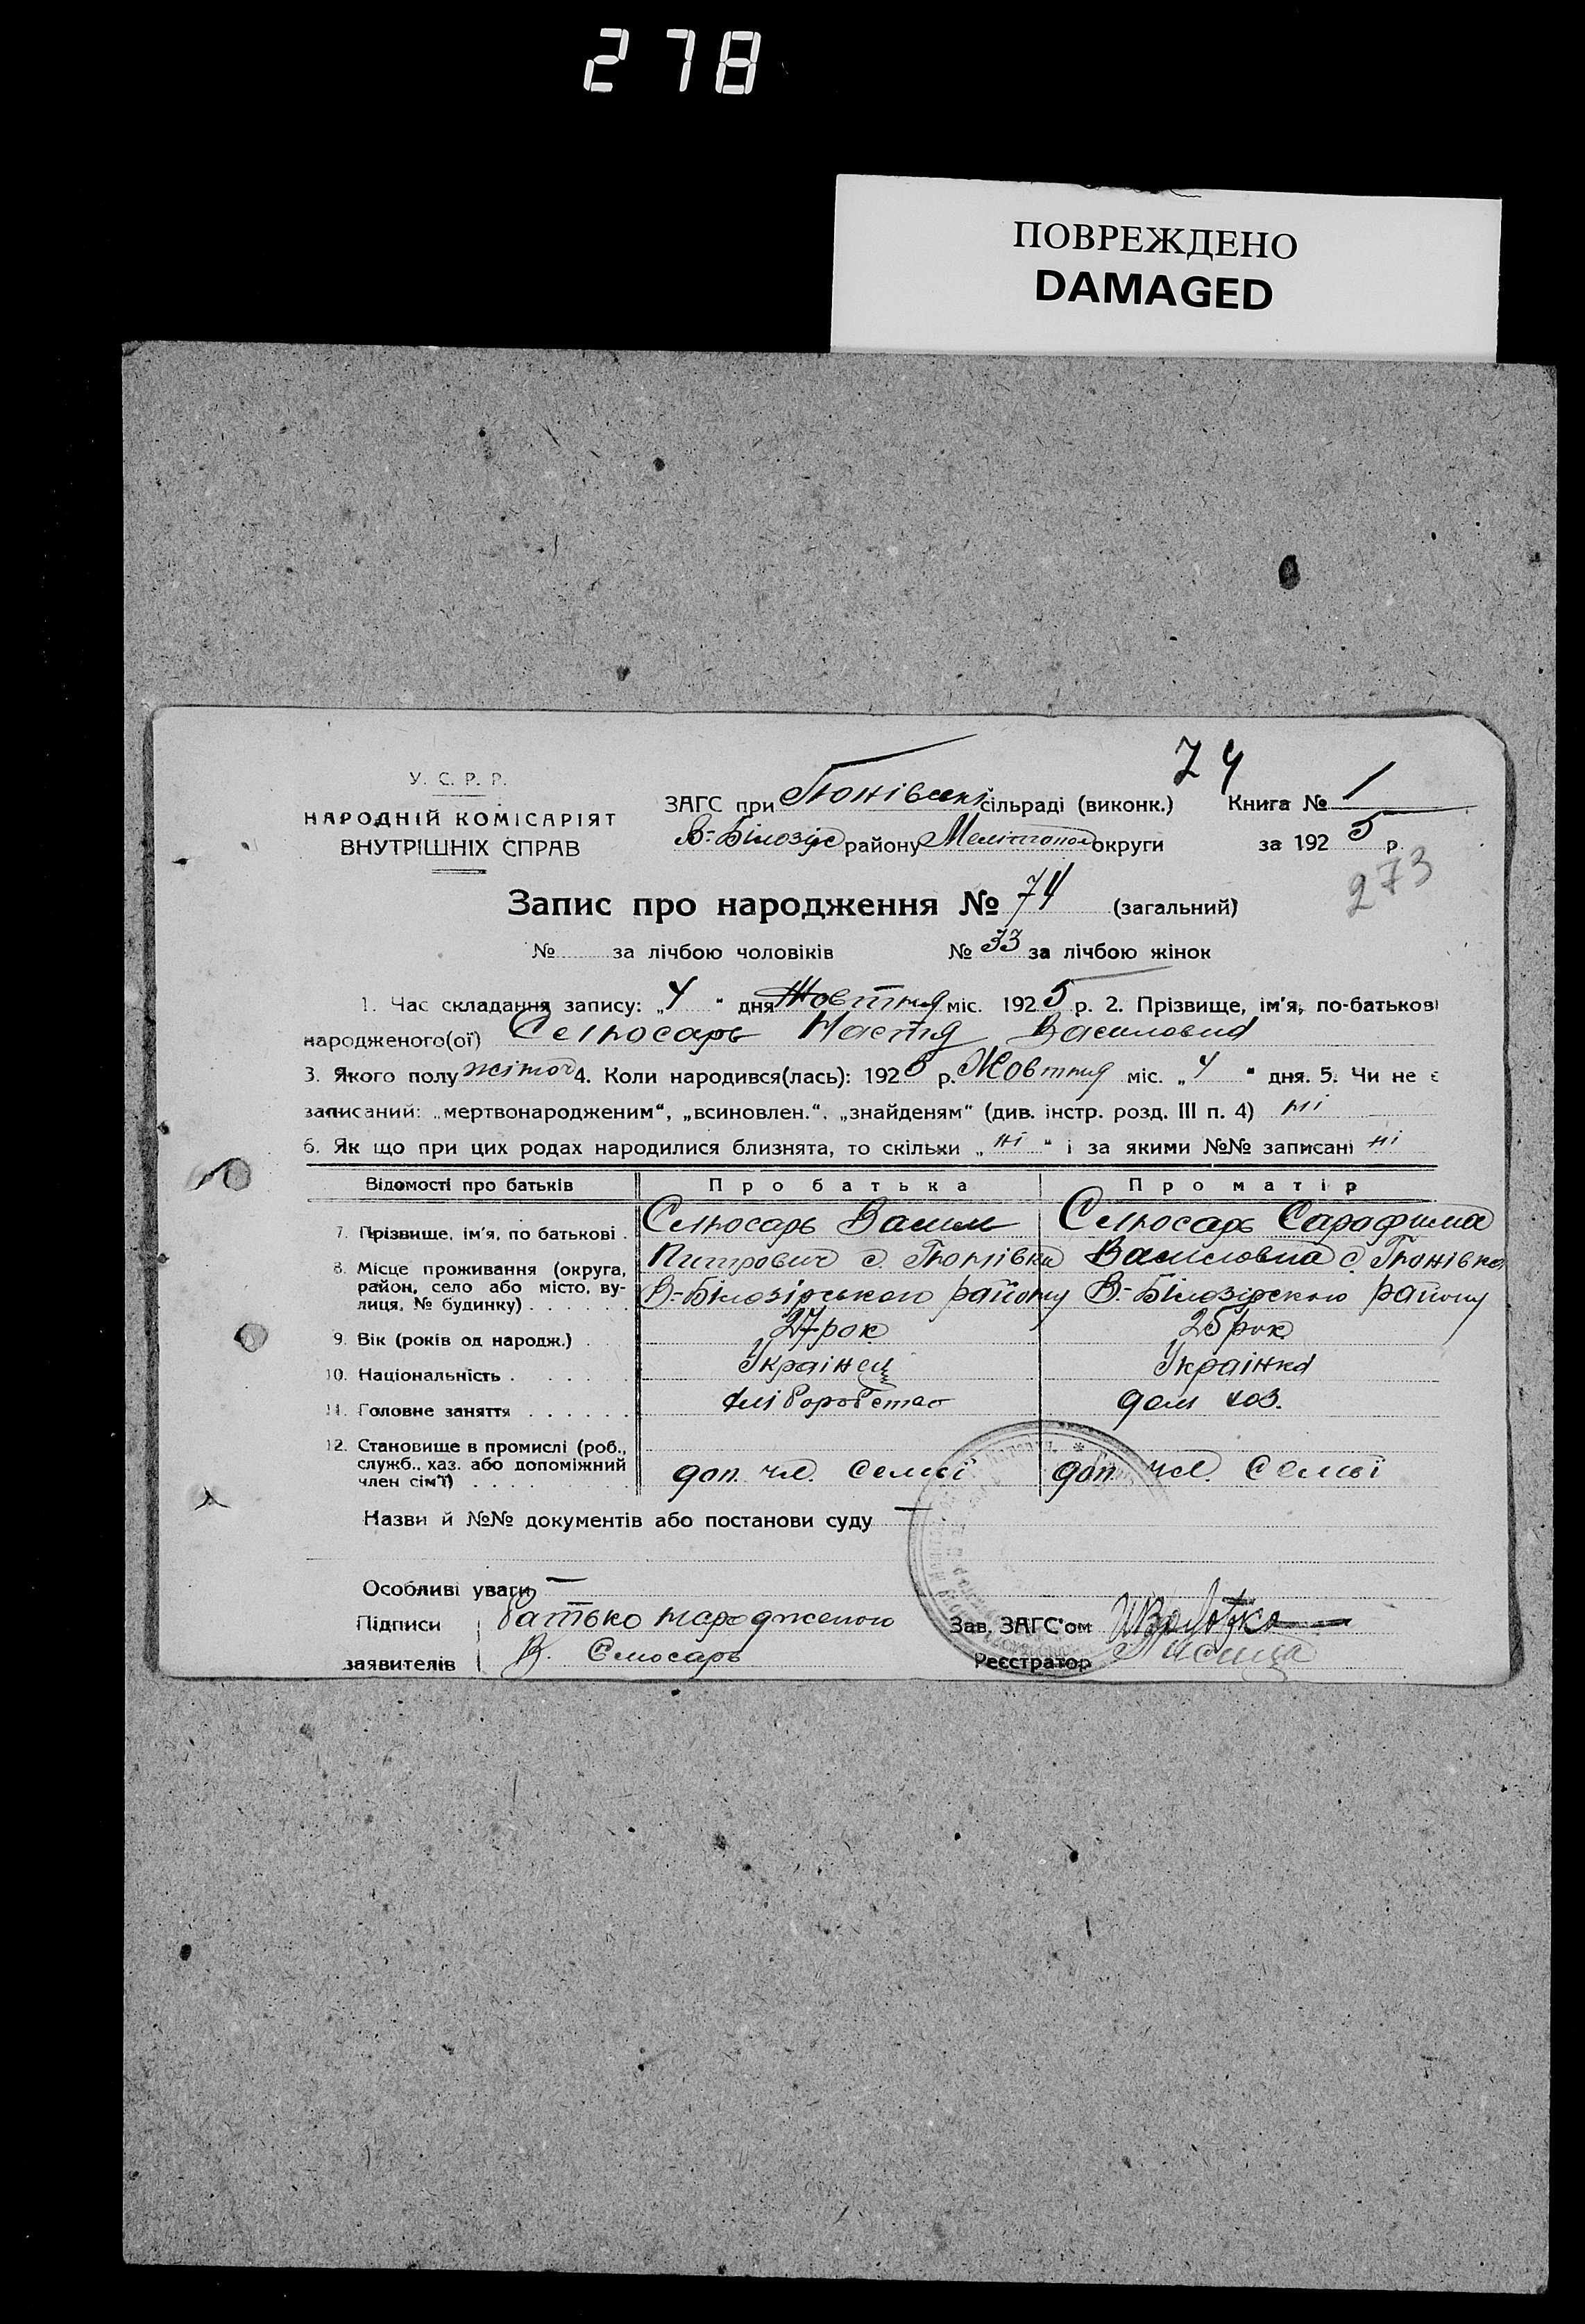 278
ПОВРЕЖДЕНО
DAMAGED
74
У. С. Р. Р.
НАРОДНІЙ КОМІСАРІЯТ
ВНУТРІШНІХ СПРАВ
ЗАГС при Тюнівські сільраді (виконк.) Книга № 1
В-Білозір району Мелітопол округи за 1925 р.
273
Запис про народження № 74 (загальний)
№ за лічбою чоловіків № 33 за лічбою жінок
1. Час складання запису: „4“ дня Жовтня міс. 1925 р. 2. Прізвище, ім’я, по-батькові
народженого(ої) Слюсарь Настя Василовна
3. Якого полу жіноч 4. Коли народився(лась): 1925 р. Жовтня міс. „4“ дня. 5. Чи не є
записаний: „мертвонародженим“, „всиновлен.“, „знайденям“ (див. інстр. розд. III п. 4) ні
6. Як що при цих родах народилися близнята, то скільки „ні“ і за якими №№ записані ні
Відомості про батьків Про батька Про матір
7. Прізвище, ім’я, по батькові . Слюсарь Васил Слюсарь Сарафима
Питрович с. Тюнівка Василовна с. Тюнівка
8. Місце проживання (округа,
район, село або місто, ву-
лиця, № будинку) . . . . . . В-Білозірського району В-Білозірского району
9. Вік (років од народж.) . 27 рок 25 рок
10. Національність . . . . . Українец Українка
11. Головне заняття . . . . . . хліборобство дом хоз.
12. Становище в промислі (роб.,
служб., хаз. або допоміжний
член сім’ї) . . . . доп. чл. семьї доп. чл. семьї
Назви й №№ документів або постанови суду —
Особливі уваги —
Підписи батько народженого Зав. ЗАГС’ом
заявителів В. Слюсарь Реєстратор